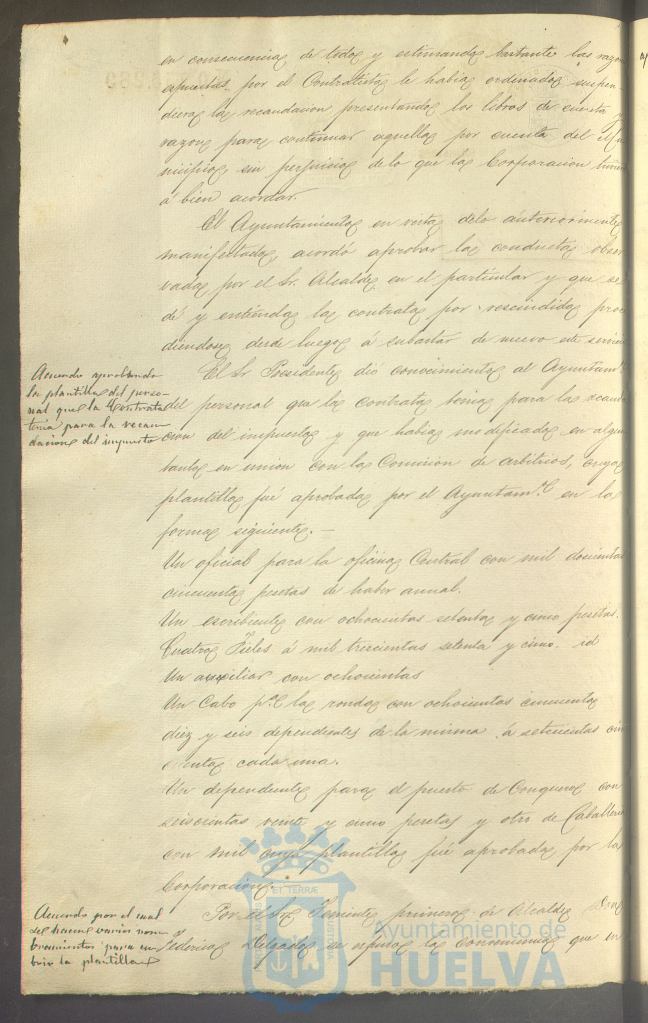 en consecuencia de todo y estimando bastante las razo
espuestas por el Contratista le habia ordenado suspen
diera la recaudacion presentando los libros de cuenta y
razon para continuar aquella por cuenta del
sin perjuicio de lo que la Corporacion
á bien acordar.
El Ayuntamiento en vista de lo anteriormente
manifestado, acordó aprobar la conducta obser
vada por el Sr. Alcalde en el particular y que se
dé y entienda la contrata por rescindida pro
diendose desde luego á subastar de nuevo este servicio
Acuerdo aprobando
la plantilla del perso-
nal que la Contrata
tenia para la recau
dacion del impuesto
El Sr Presidente dió conocimiento al Ayuntam.to
del personal que la contrata tenia para la recauda
cion del impuesto y que habia modificado en algun
tanto en union con la Comision de arbitrios, cuya
plantilla fué aprobada por el Ayuntam.to en la
forma siguiente.—
Un oficial para la oficina Central con mil doscientas
cincuenta pesetas de haber anual.
Un escribiente con ochocientas setenta y cinco pesetas.
Cuatro Fieles á mil trescientas setenta y cinco. id
Un auxiliar con ochocientas
Un Cabo p.a la ronda con ochocientas cincuenta
diez y seis dependientes de la misma á setecientas cin
cuenta cada uno.
Un dependiente para el puesto de Conquero con
seiscientas veinte y cinco pesetas y otro de Caballeria
con mil cuya plantilla fué aprobada por la
Corporacion.
Acuerdo por el cual
se hacen varios nom
bramientos para cu
brir la plantilla
Por el Sr. Teniente primero de Alcalde Don
Federico Delgado se espuso la conveniencia que
Ayuntamiento de
HUELVA